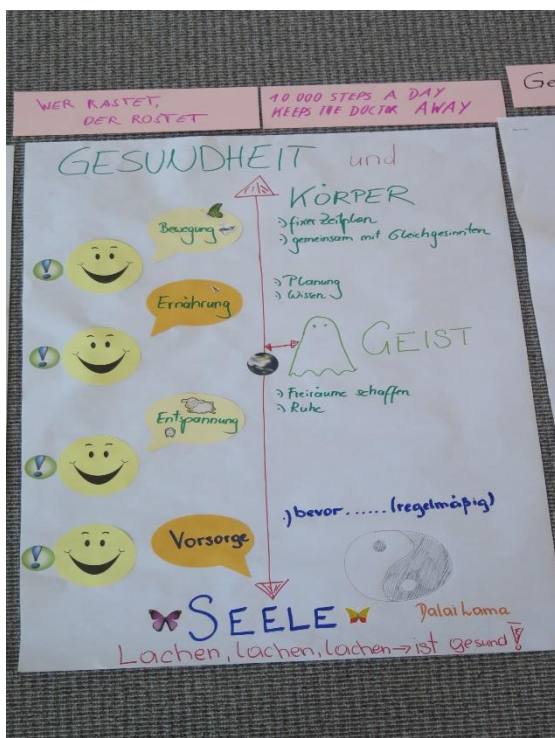 WER RASTET,
DER ROSTET
10 000 STEPS A DAY
KEEPS THE DOCTOR AWAY
Ge
GESUNDHEIT und
KÖRPER
Bewegung
fixer Zeitplan
gemeinsam mit Gleichgesinnten
Ernährung
Planung
Wissen
GEIST
Entspannung
Freiräume schaffen
Ruhe
Vorsorge
.) bevor ...... (regelmäßig)
SEELE
Dalai Lama
Lachen, lachen, lachen → ist gesund!